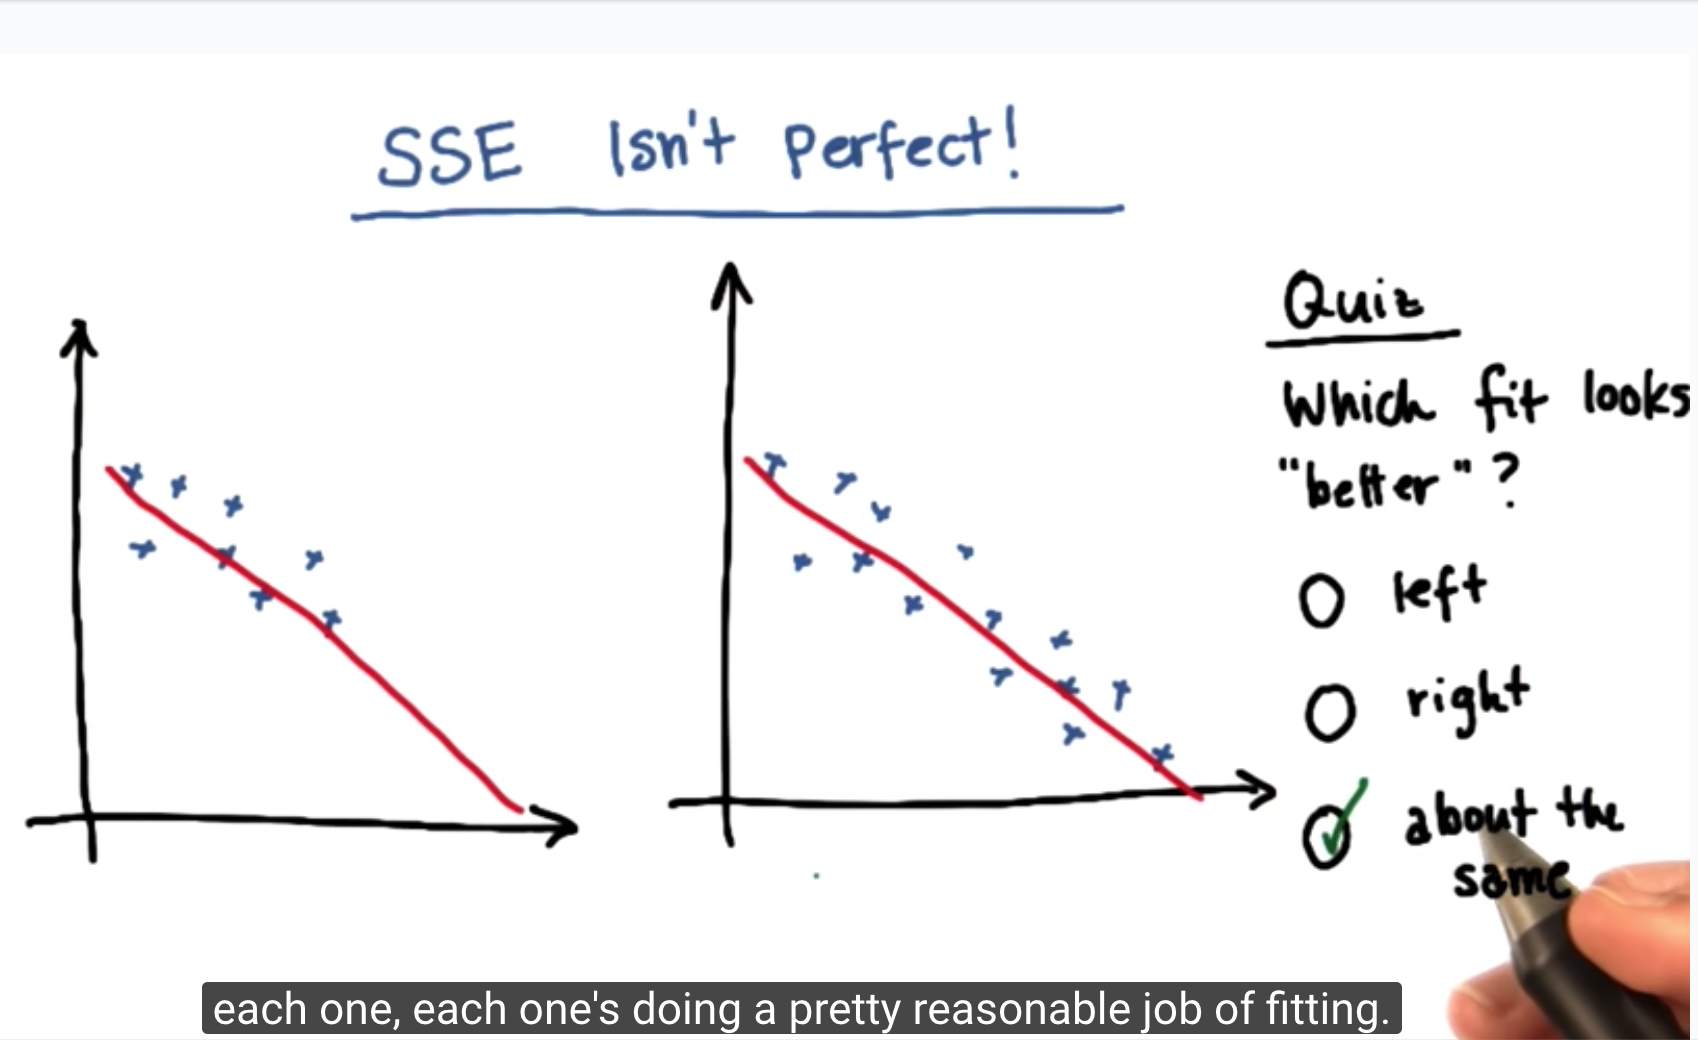 SSE Isn't Perfect!
Quiz
Which fit looks
"better"?
left
right
about the
same
each one, each one's doing a pretty reasonable job of fitting.